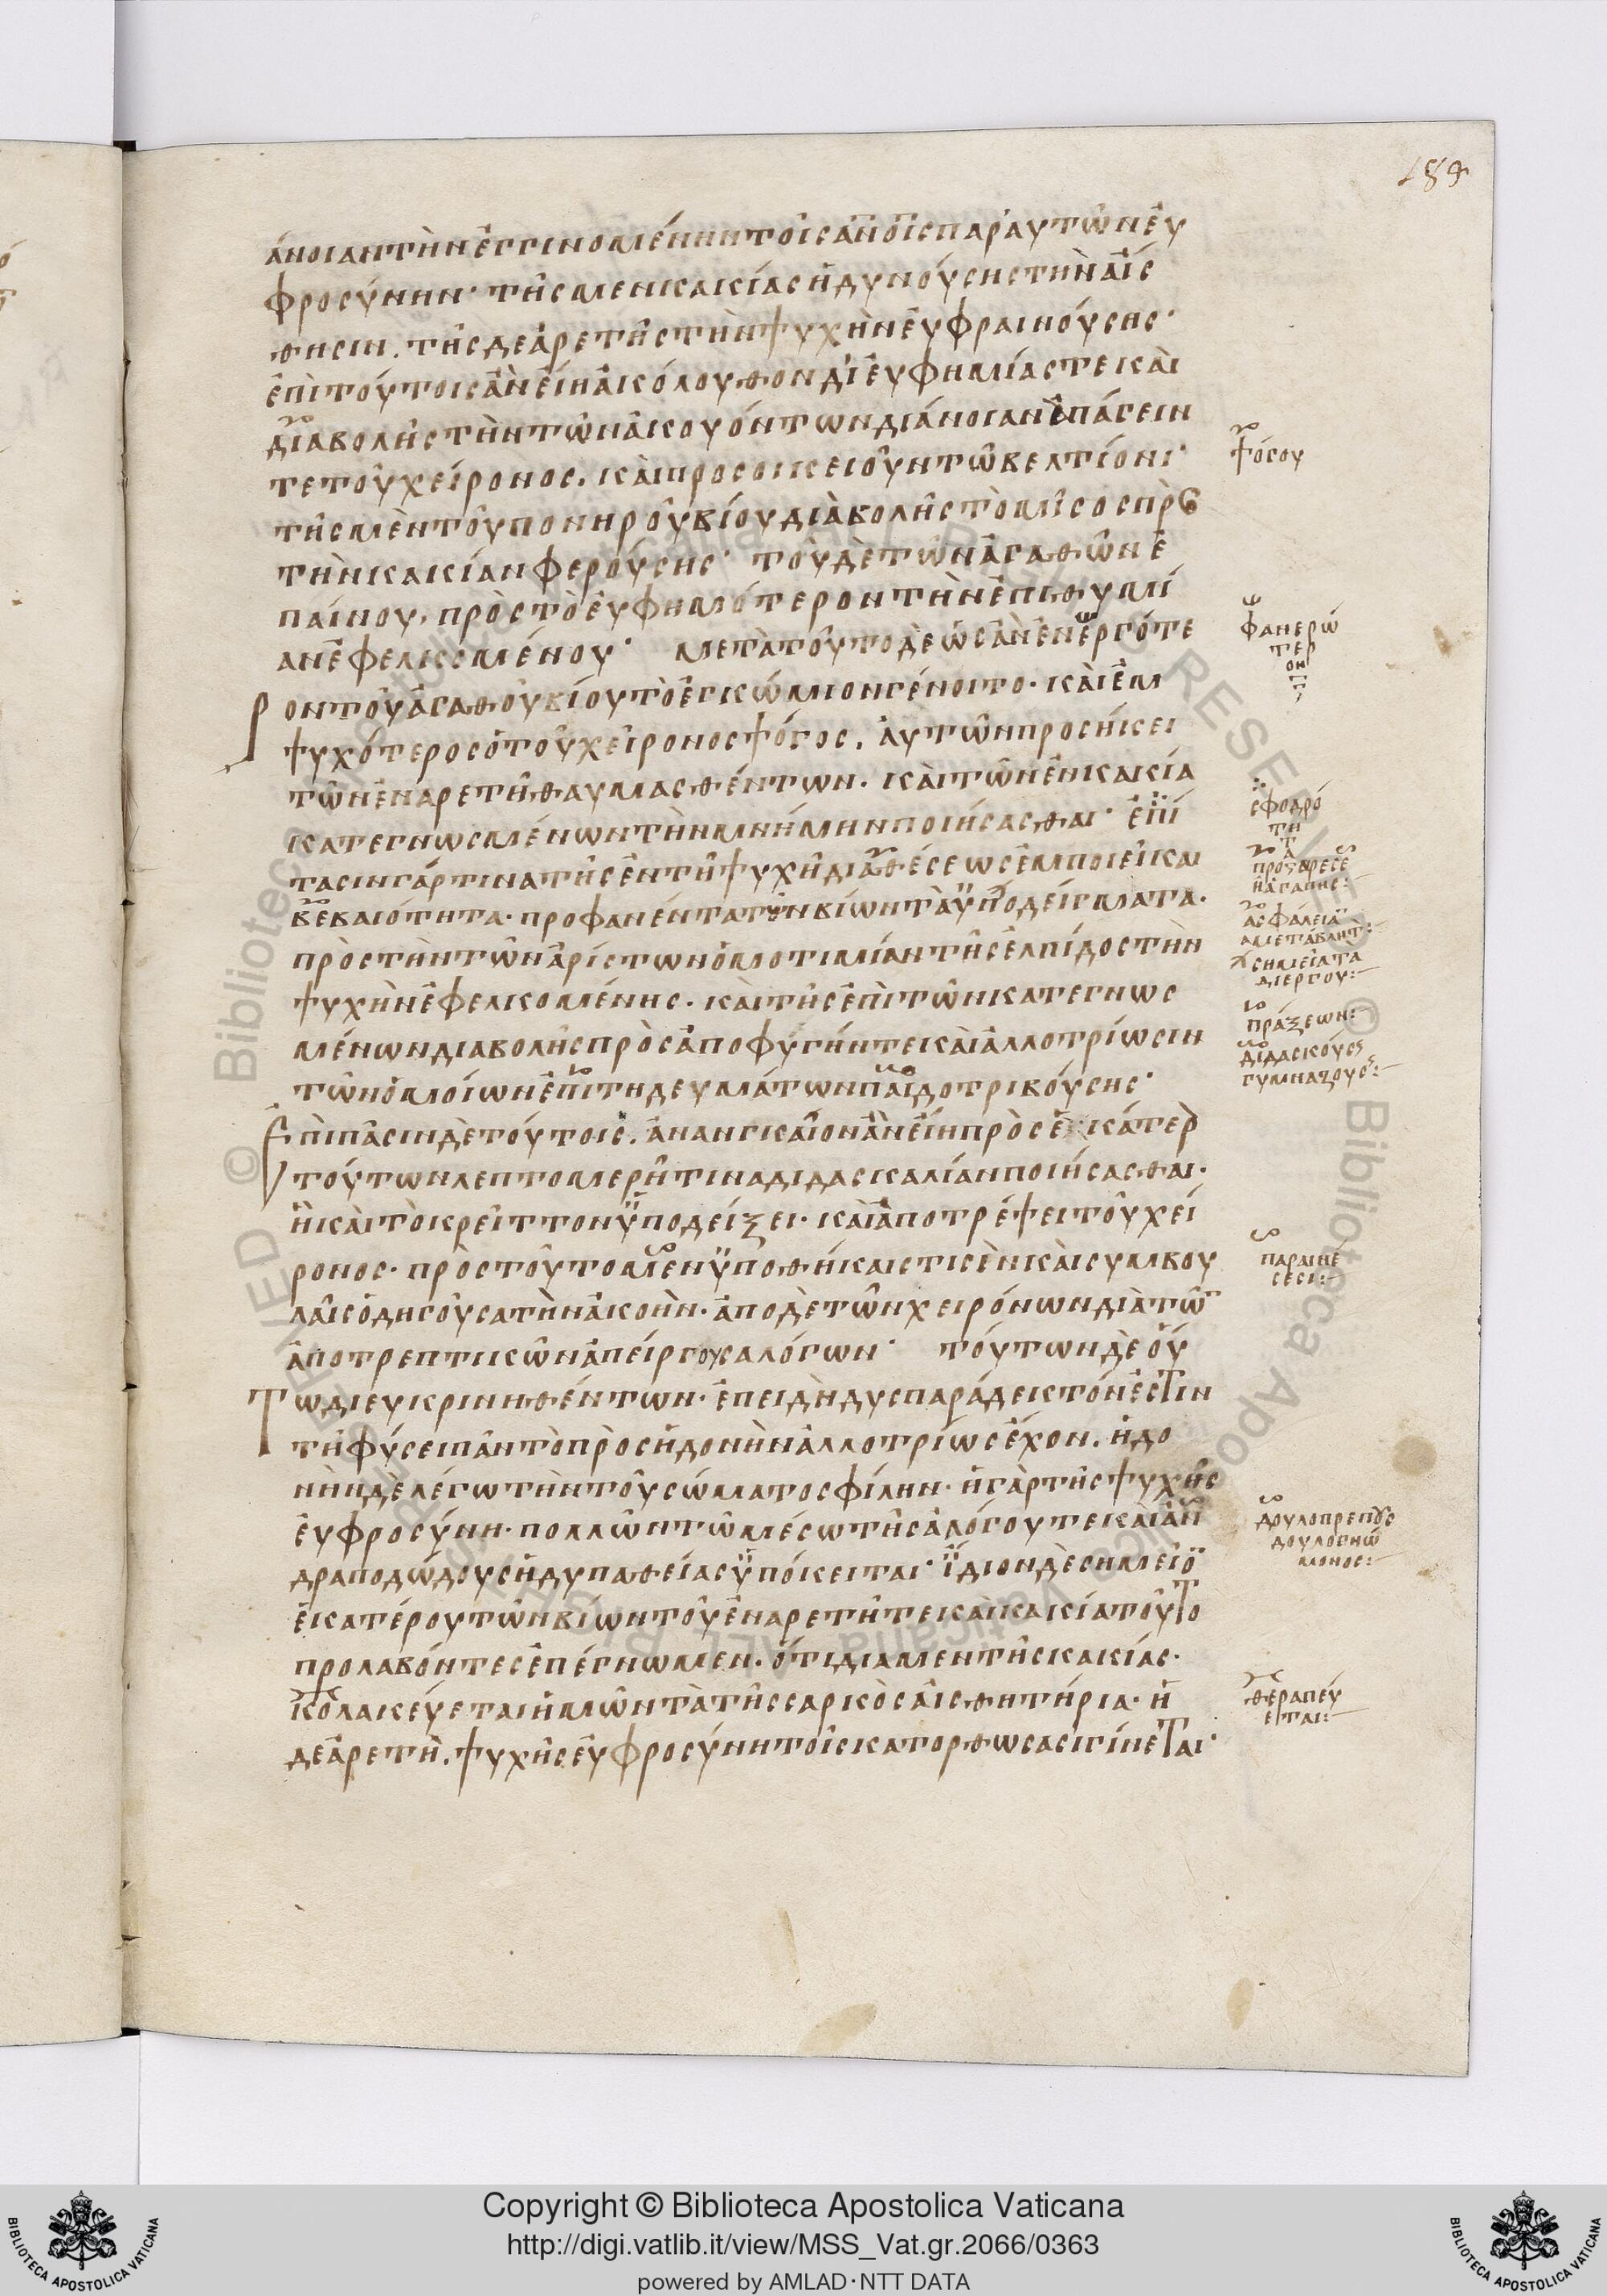 189
άνοιαν τὴν ἐγγινομένην τοῖς ἀνοις παρ αὐτῶν εὐ
φροσύνην· τῆς μεν κακίας ἡδυνούσης τὴν αἴσ
θησιν. τῆς δε ἀρετῆς τὴν ψυχὴν εὐφραινούσης·
ἐπὶ τούτοις ἂν εἴη ἀκόλουθον δι εὐφημίας τε καὶ
διαβολῆς τὴν τῶν ἀκουόντων διάνοιαν ἐπάγειν
τε τοῦ χείρονος. καὶ προσοικειοῦν τῶ βελτίονι·
τῆς μὲν τοῦ πονηροῦ βίου διαβολῆς τὸ μῖσος πρὸς
τὴν κακίαν φερούσης· τοῦ δὲ τῶν ἀγαθῶν ἐ
παίνου, πρὸς τὸ εὐφημότερον τὴν ἐπιθυμί
αν ἐφελκομένου· μετὰ τοῦτο δὲ ὡς ἂν ἐνεργότε
ρ ον τοῦ ἀγαθοῦ βίου τὸ ἐγκώμιον γένοιτο· καὶ ἐμ
ψυχότερος ὁ τοῦ χείρονος ψόγος. αὐτῶν προσήκει
τῶν ἐν ἀρετῆ θαυμασθέντων. καὶ τῶν ἐν κακία
κατεγνωσμένων τὴν μνήμην ποιήσασθαι· ἐπί
τασιν γάρ τινα τῆς ἐν τῆ ψυχῆ διαθέσεως ἐμποιεῖ και
βεβαιότητα· προφανέντα τῶν βίων τὰ ὑποδείγματα.
πρὸς τὴν τῶν ἀρίστων ὁμοτιμίαν τῆς ἐλπίδος τὴν
ψυχὴν ἐφελκομένης. καὶ τῆς ἐπὶ τῶν κατεγνωσ
μένων διαβολῆς πρὸς ἀποφυγήν τε καὶ ἀλλοτρίωσιν
τῶν ὁμοίων ἐπιτηδευμάτων παιδοτριβούσης·
Ε πι πᾶσιν δὲ τούτοις. ἀναγκαῖον ἂν εἴη πρὸς ἑκάτερ
τούτων λεπτομερῆ τινα διδασκαλίαν ποιήσασθαι.
ἣ καὶ τὸ κρεῖττον ὑποδείξει· καὶ ἀποτρέψει τοῦ χεί
ρονος· πρὸς τοῦτο μεν ὑποθήκαις τισὶν καὶ συμβου
λαῖς ὁδηγοῦσα τὴν ἀκοὴν· ἀπο δὲ τῶν χειρόνων διὰ τῶ
ἀποτρεπτικῶν ἀπείργουσα λόγων· τούτων δὲ οὕ
Τ ω διευκρινηθέντων· ἐπειδὴ δυσπαράδεκτόν ἐστιν
τῆ φύσει πᾶν τὸ πρὸς ἡδονὴν ἀλλοτρίως ἔχον. ἡδο
νὴν δὲ λέγω τὴν τοῦ σώματος φίλην· ἡ γὰρ τῆς ψυχῆς
εὐφροσύνη· πολλῶν τῶ μέσω τῆς ἀλόγου τε καὶ ἀν
δραποδώδους ἡδυπαθείας ὑπόκειται· ἴδιον δὲ σημεῖο
ἑκατέρου τῶν βίων τοῦ ἐν ἀρετῆ τε καὶ κακία τοῦτο
προλαβόντες ἐπέγνωμεν. ὅτι δια μεν τῆς κακίας.
κολακεύεται ἡμῶν τὰ τῆς σαρκὸς αἰσθητήρια· ἡ
δε ἀρετὴ. ψυχῆς εὐφροσύνη τοῖς κατορθωσασι γίνεται·
ψόγου
φανερώ
τερ
ον
σφοδρό
τη
τα
ἀσφάλεια
σημεῖα τα
δι ἔργου:
πράξεων:
διδασκούσς
γυμναζουσ:
παραινέ
σεσι:
δουλοπρεποῦς
δουλογνώ
μονος:
θεραπεύ
εται:
Copyright © Biblioteca Apostolica Vaticana
http://digi.vatlib.it/view/MSS_Vat.gr.2066/0363
powered by AMLAD·NTT DATA